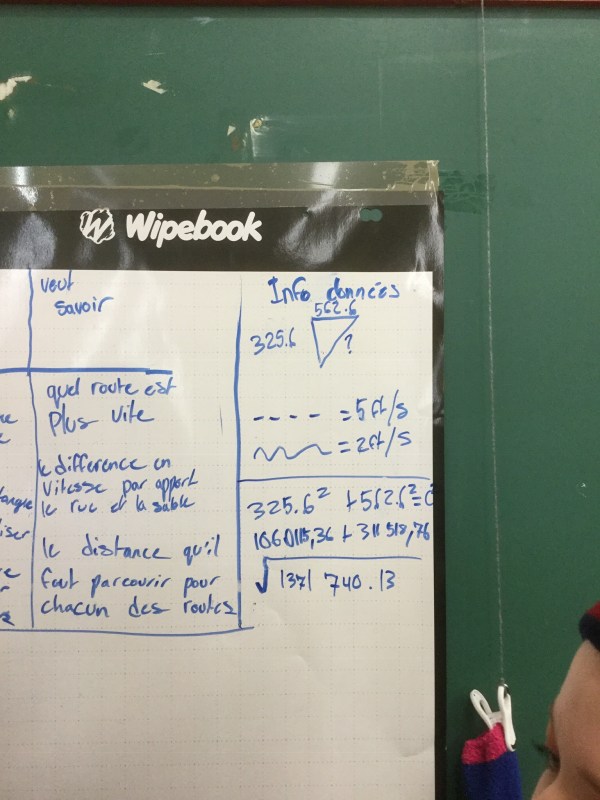 Wipebook
veut
savoir
quel route est
Plus vite
le difference en
vitesse par apport
le rue et la sable
le distance qu'il
faut parcourir pour
chacun des routes
Info données
562.6
325.6
?
= 5 ft/s
= 2 ft/s
325.6² + 562.6² =
106015,36 + 311 518,76
√1371 740.13